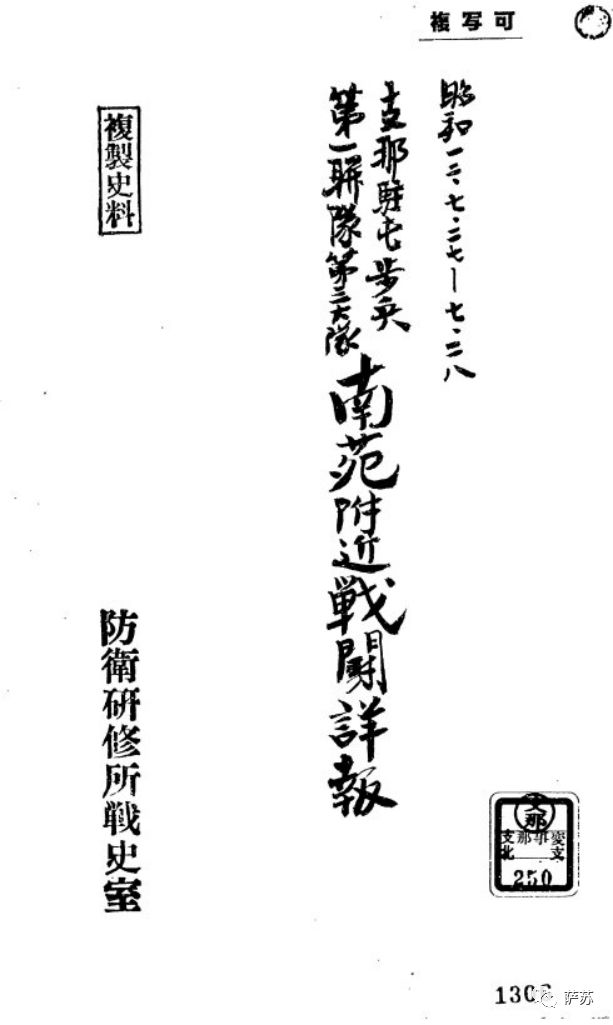 複写可
昭和一二、七、二七ー七、二八
支那駐屯歩兵
第一聯隊第三大隊
南苑附近戦闘詳報
複製史料
防衛研修所戦史室
支那
支那事変
支北
250
130
萨苏